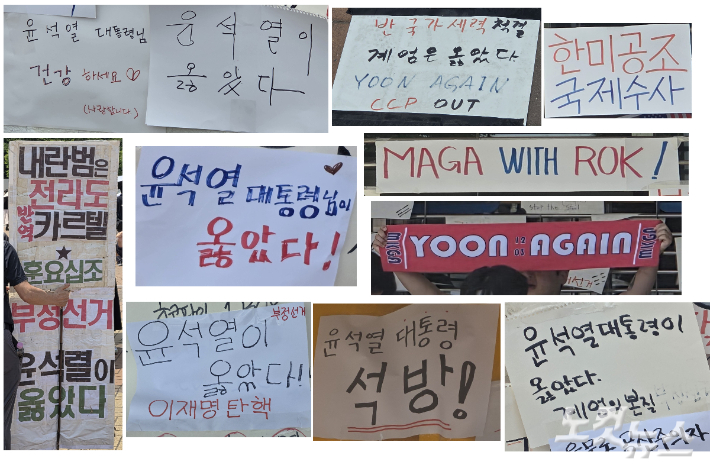 윤석열 대통령님
건강 하세요♡
(사랑합니다)
윤석열이
옳았다
반국가세력 척결
계엄은 옳았다
YOON AGAIN
CCP OUT
한미공조
국제수사
내란범은
전라도
반역
카르텔
★
훈요십조
부정선거
윤석렬이
옳았다
윤석열 대통령님이
옳았다!
MAGA WITH ROK!
YOON 12 03 AGAIN
부정선거
윤석열이
옳았다!!
이재명탄핵
윤석열 대통령
석방!
윤석열대통령이
옳았다.
계엄의본질
노컷뉴스